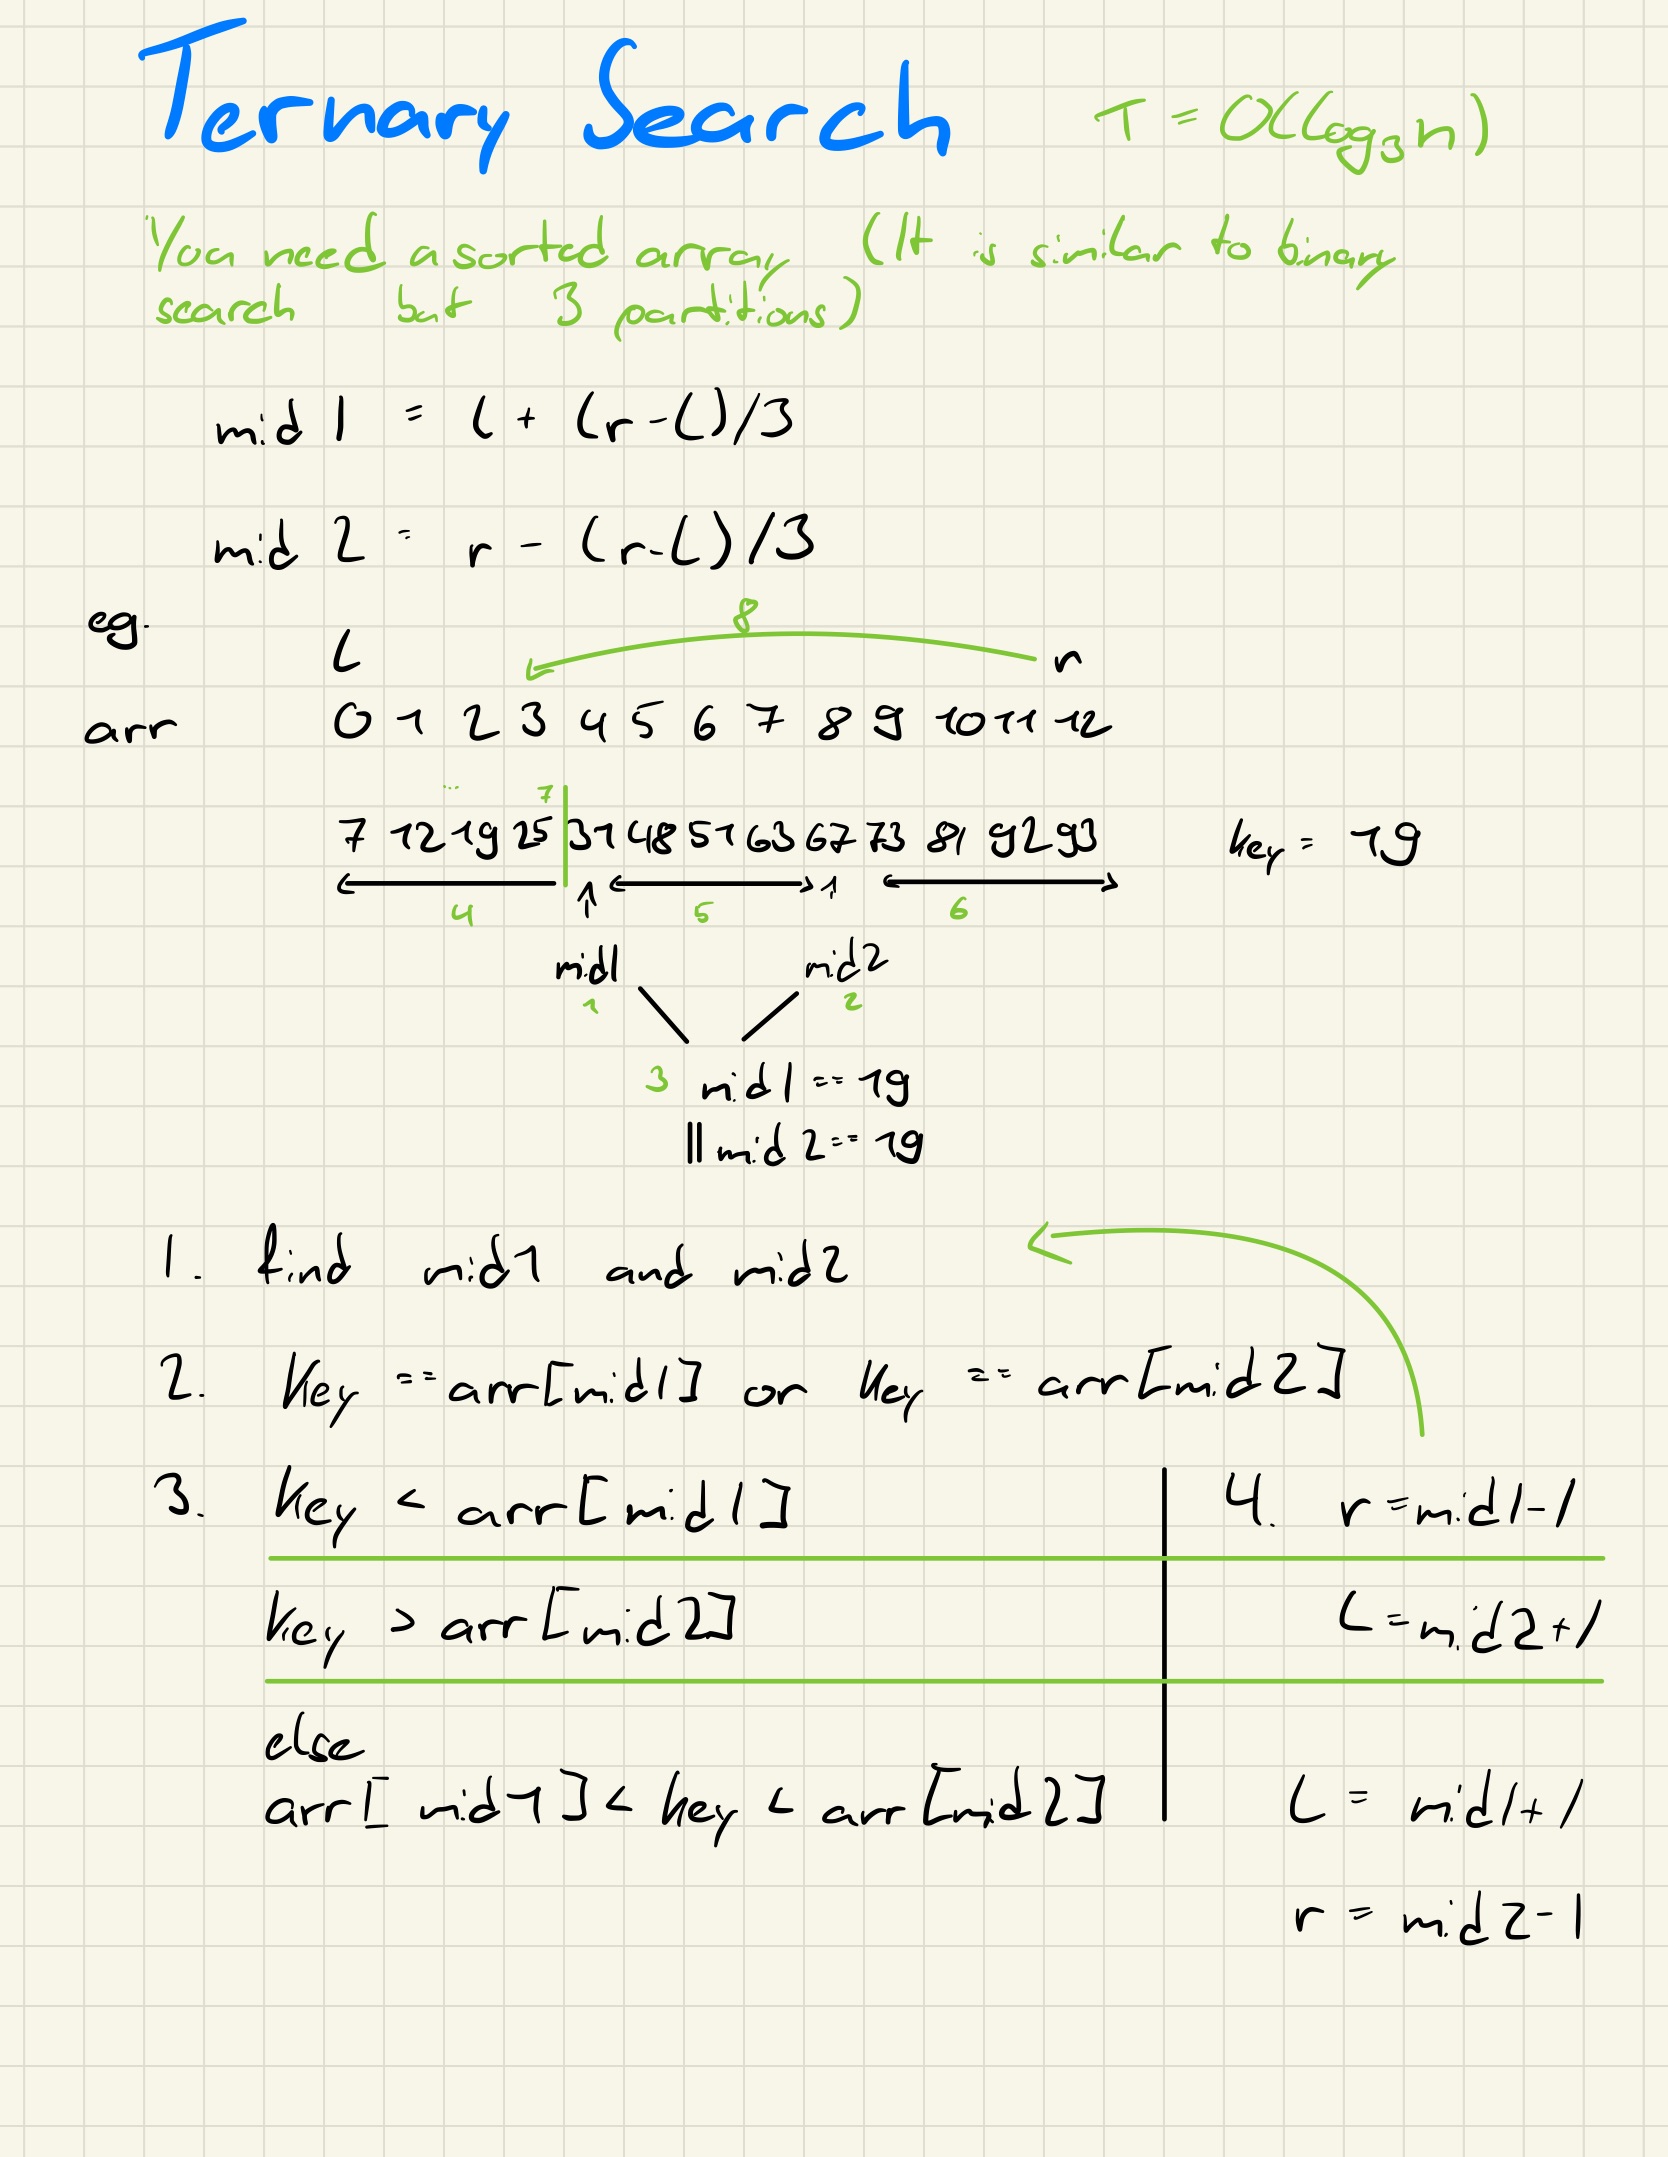 Ternary Search T = O(log₃n)
You need a sorted array (It is similar to binary
search but 3 partitions)
mid 1 = l + (r-l)/3
mid 2 = r - (r-l)/3
eg.
8
l r
arr 0 1 2 3 4 5 6 7 8 9 10 11 12
... 7
7 12 19 25 31 48 51 63 67 73 81 92 93 key = 19
4 5 6
mid1 mid2
1 2
3 mid1 == 19
|| mid2 == 19
1. find mid1 and mid2
2. key == arr[mid1] or key == arr[mid2]
3. key < arr[mid1] 4. r = mid1-1
key > arr[mid2] l = mid2+1
else
arr[mid1] < key < arr[mid2] l = mid1+1
r = mid2-1